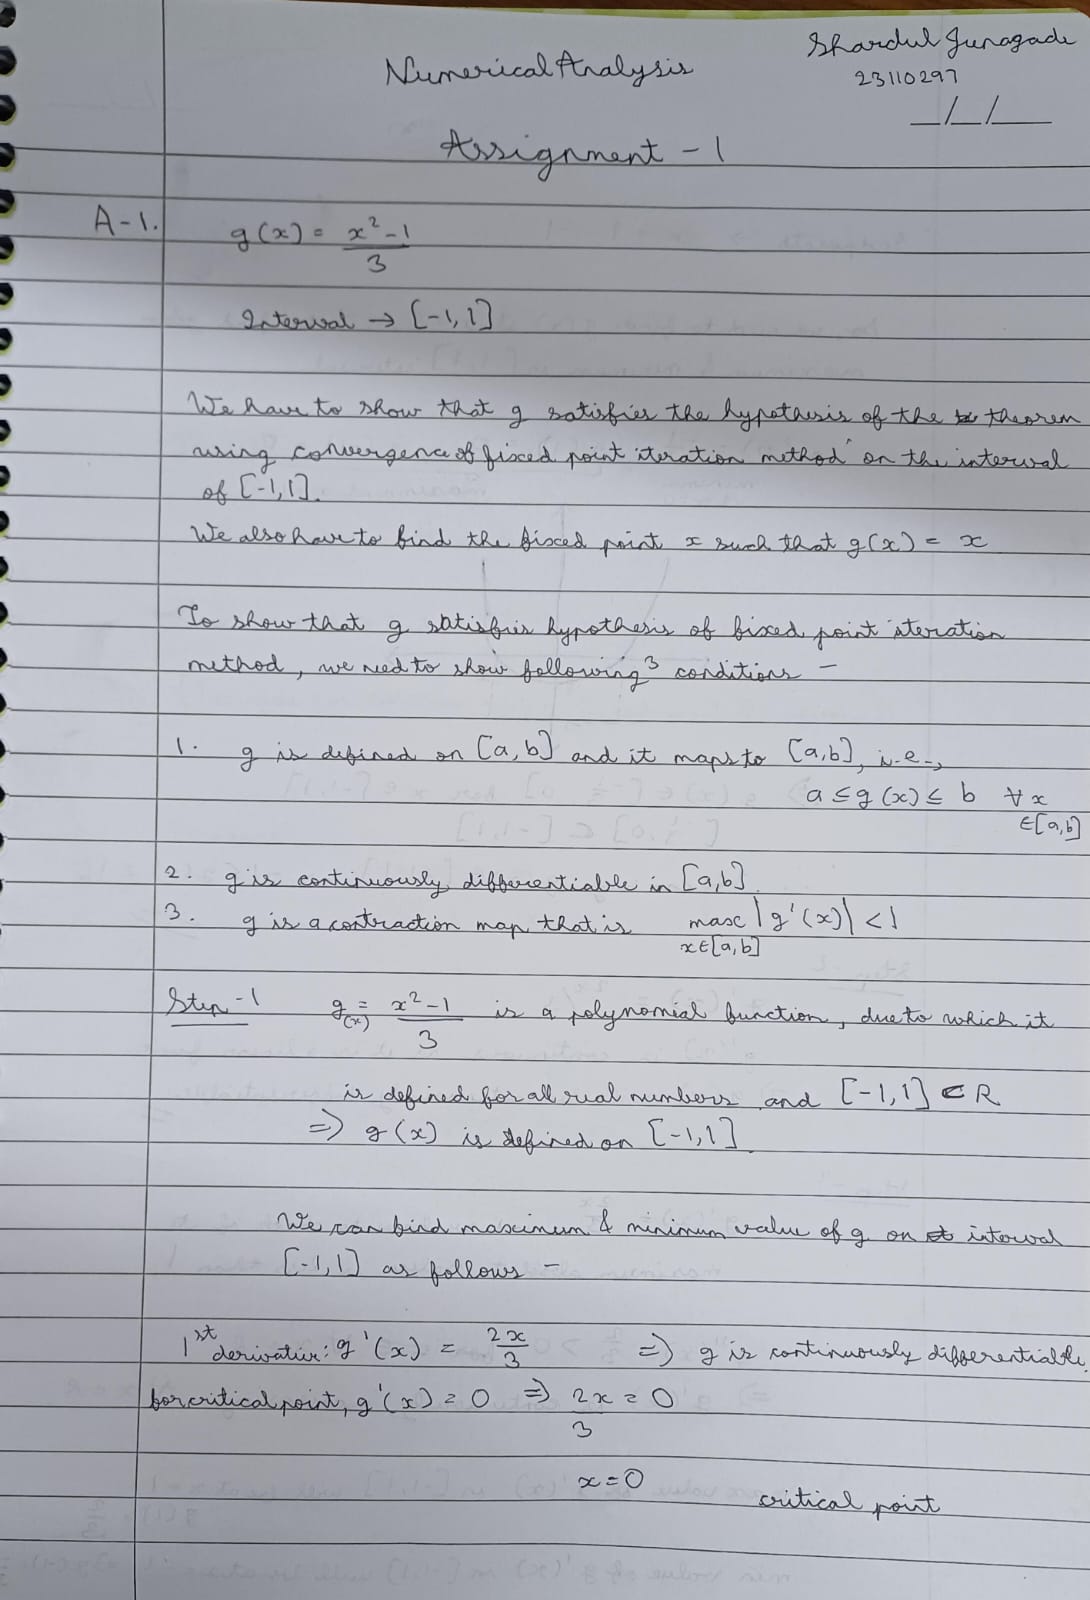 Shardul Junagade
Numerical Analysis
23110297
_/_/_
Assignment - 1
A-1.
g(x) = x² - 1 / 3
Interval → [-1, 1]
We have to show that g satisfies the hypothesis of the theorem
using convergence of fixed point iteration method on the interval
of [-1, 1].
We also have to find the fixed point x such that g(x) = x
To show that g satisfies hypothesis of fixed point iteration
method, we need to show following 3 conditions -
1. g is defined on [a, b] and it maps to [a, b], i.e.,
a ≤ g(x) ≤ b ∀ x ∈ [a, b]
2. g is continuously differentiable in [a, b].
3. g is a contraction map that is max |g'(x)| < 1
x ∈ [a, b]
Step - 1 g(x) = x² - 1 / 3 is a polynomial function, due to which it
is defined for all real numbers and [-1, 1] ⊂ R
⇒ g(x) is defined on [-1, 1].
We can find maximum & minimum value of g on interval
[-1, 1] as follows -
1st derivative: g'(x) = 2x / 3 ⇒ g is continuously differentiable.
for critical point, g'(x) = 0 ⇒ 2x / 3 = 0
x = 0 critical point